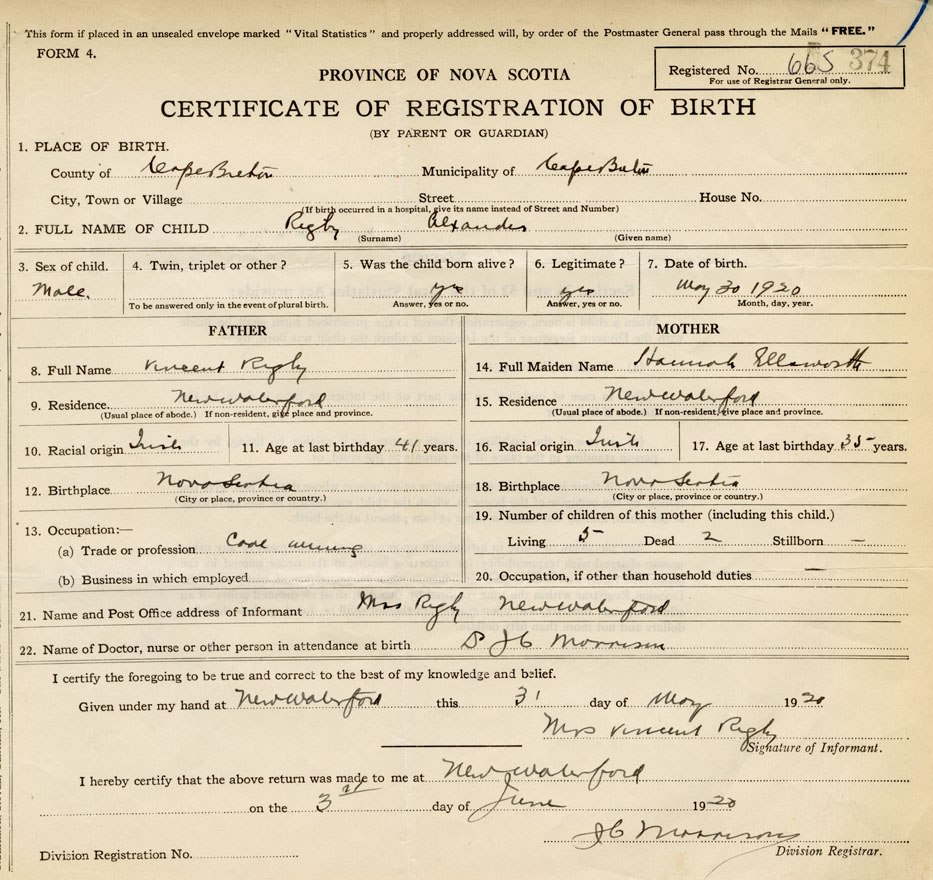 This form if placed in an unsealed envelope marked "Vital Statistics" and properly addressed will, by order of the Postmaster General pass through the Mails "FREE."
FORM 4.
Registered No. 665 374
For use of Registrar General only.
PROVINCE OF NOVA SCOTIA
CERTIFICATE OF REGISTRATION OF BIRTH
(BY PARENT OR GUARDIAN)
1. PLACE OF BIRTH.
County of Cape Breton Municipality of Cape Breton
City, Town or Village Street House No.
(If birth occurred in a hospital, give its name instead of Street and Number)
2. FULL NAME OF CHILD Rigby Alexander
(Surname) (Given name)
3. Sex of child. 4. Twin, triplet or other? 5. Was the child born alive? 6. Legitimate? 7. Date of birth.
Male. yes yes May 30 1920
To be answered only in the event of plural birth. Answer, yes or no. Answer, yes or no. Month, day, year.
FATHER
8. Full Name Vincent Rigby
9. Residence. New Waterford
(Usual place of abode.) If non-resident, give place and province.
10. Racial origin Irish 11. Age at last birthday 41 years.
12. Birthplace Nova Scotia
(City or place, province or country.)
13. Occupation:—
(a) Trade or profession Coal mining
(b) Business in which employed
MOTHER
14. Full Maiden Name Hannah Ellsworth
15. Residence New Waterford
(Usual place of abode.) If non-resident, give place and province.
16. Racial origin Irish 17. Age at last birthday 35 years.
18. Birthplace Nova Scotia
(City or place, province or country.)
19. Number of children of this mother (including this child.)
Living 5 Dead 2 Stillborn —
20. Occupation, if other than household duties —
21. Name and Post Office address of Informant Mrs Rigby New Waterford
22. Name of Doctor, nurse or other person in attendance at birth Dr J C Morrison
I certify the foregoing to be true and correct to the best of my knowledge and belief.
Given under my hand at New Waterford this 31 day of May 1920
Mrs Vincent Rigby
Signature of Informant.
I hereby certify that the above return was made to me at New Waterford
on the 3rd day of June 1920
J C Morrison
Division Registration No. Division Registrar.